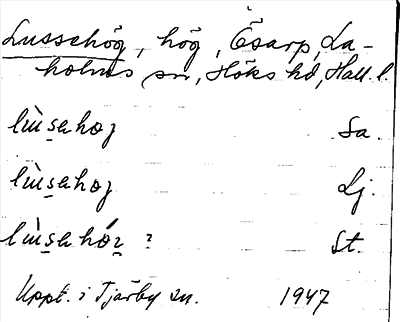 Lussehög, hög, Ösarp, La-
holms sn, Höks hd, Hall. l.
lùsahog Sa.
lùsahog Lj.
lùsahóg ? St.
Uppt. i Tjärby sn. 1947